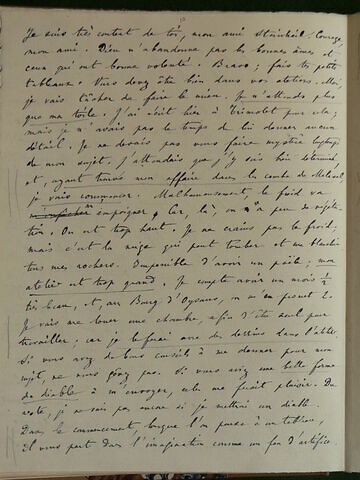 Je suis très content de toi, mon ami Steinheil. Courage,
mon ami. Dieu n'abandonne pas les bonnes âmes et
ceux qui ont bonne volonté. Bravo ; fais tes petits
tableaux. Vous devez être bien dans vos ateliers. Moi,
je vais tâcher de faire le mien. Je n'attends plus
que ma toile. J'ai écrit hier à Trimolet pour cela ;
mais je n'avais pas le temps de lui donner aucun
détail. Je ne devais pas vous faire mystère longtemps
de mon sujet. J'attendais que j'y sois bien déterminé,
et, ayant trouvé mon affaire dans la combe de Malaval
je vais commencer. Malheureusement, le froid va
empoigner ; car, là, on n'a peu de végéta-
tion. On est trop haut. Je ne crains pas le froid,
mais c'est la neige qui peut tomber et me blanchir
tous mes rochers. Impossible d'avoir un poêle ; mon
atelier est trop grand. Je compte avoir un mois 1/2
très beau, et, au Bourg d'Oysans, on m'en promet 2.
Je vais me louer une chambre, afin d'être seul pour
travailler ; car je le ferai avec des dessins dans l'
Si vous avez de bons conseils à me donner pour mon
sujet, ne vous gênez pas. Si vous avez une belle forme
de diable à m'envoyer, cela me ferait plaisir. Du
reste, je ne sais pas encore si je mettrai un diable.
Dans le commencement, lorsque l'on pense à un tableau,
il vous part dans l'imagination comme un feu d'artifice.